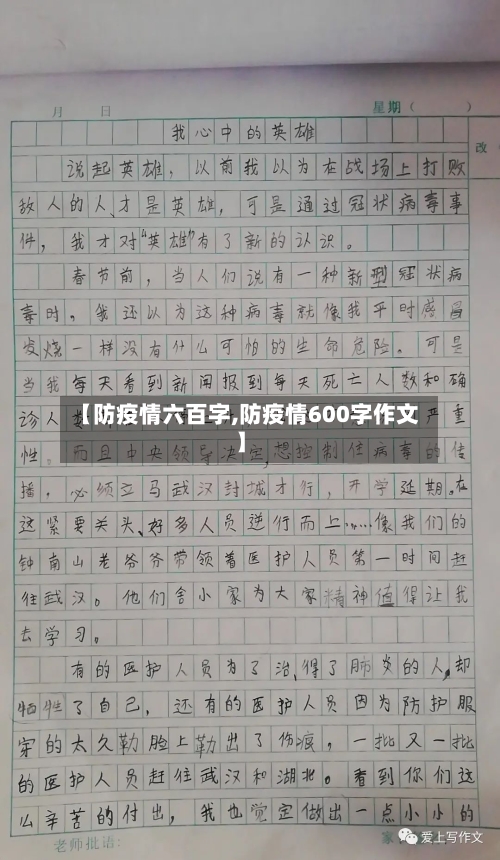 月 日 星期（ ）
改
我心中的英雄
说起英雄，以前我以为在战场上打败
敌人的人，才是英雄，可是通过冠状病毒事
件，我才对“英雄”有了新的认识。
春节前，当人们说有一种新型冠状病
毒时，我还以为这种病毒就像我平时感冒
发烧一样没有什么可怕的生命危险。可是
当我每天看到新闻报到每天死亡人数和确
诊人 严重
【防疫情六百字,防疫情600字作文
】
性。而且中央领导决定，想控制住病毒的传
播，必须立马武汉封城才行，开学延期。在
这紧要关头、好多人员逆行而上……像我们的
钟南山老爷爷带领着医护人员第一时间赶
往武汉。他们舍小家为大家精神值得让我
去学习。
有的医护人员为了治、得了肺炎的人，却
牺牲了自己，还有的医护人员因为防护服
穿的太久勒脸上勒出了伤痕，一批又一批
的医护人员赶往武汉和湖北。看到你们这
么辛苦的付出，我也觉定做出一点小小的
老师批语：
家
爱上写作文